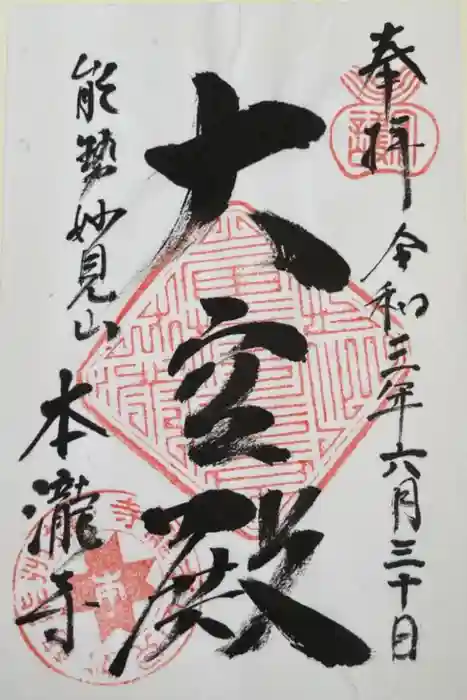 奉拝
令和三年六月三十日
大空殿
能勢妙見山
本瀧寺